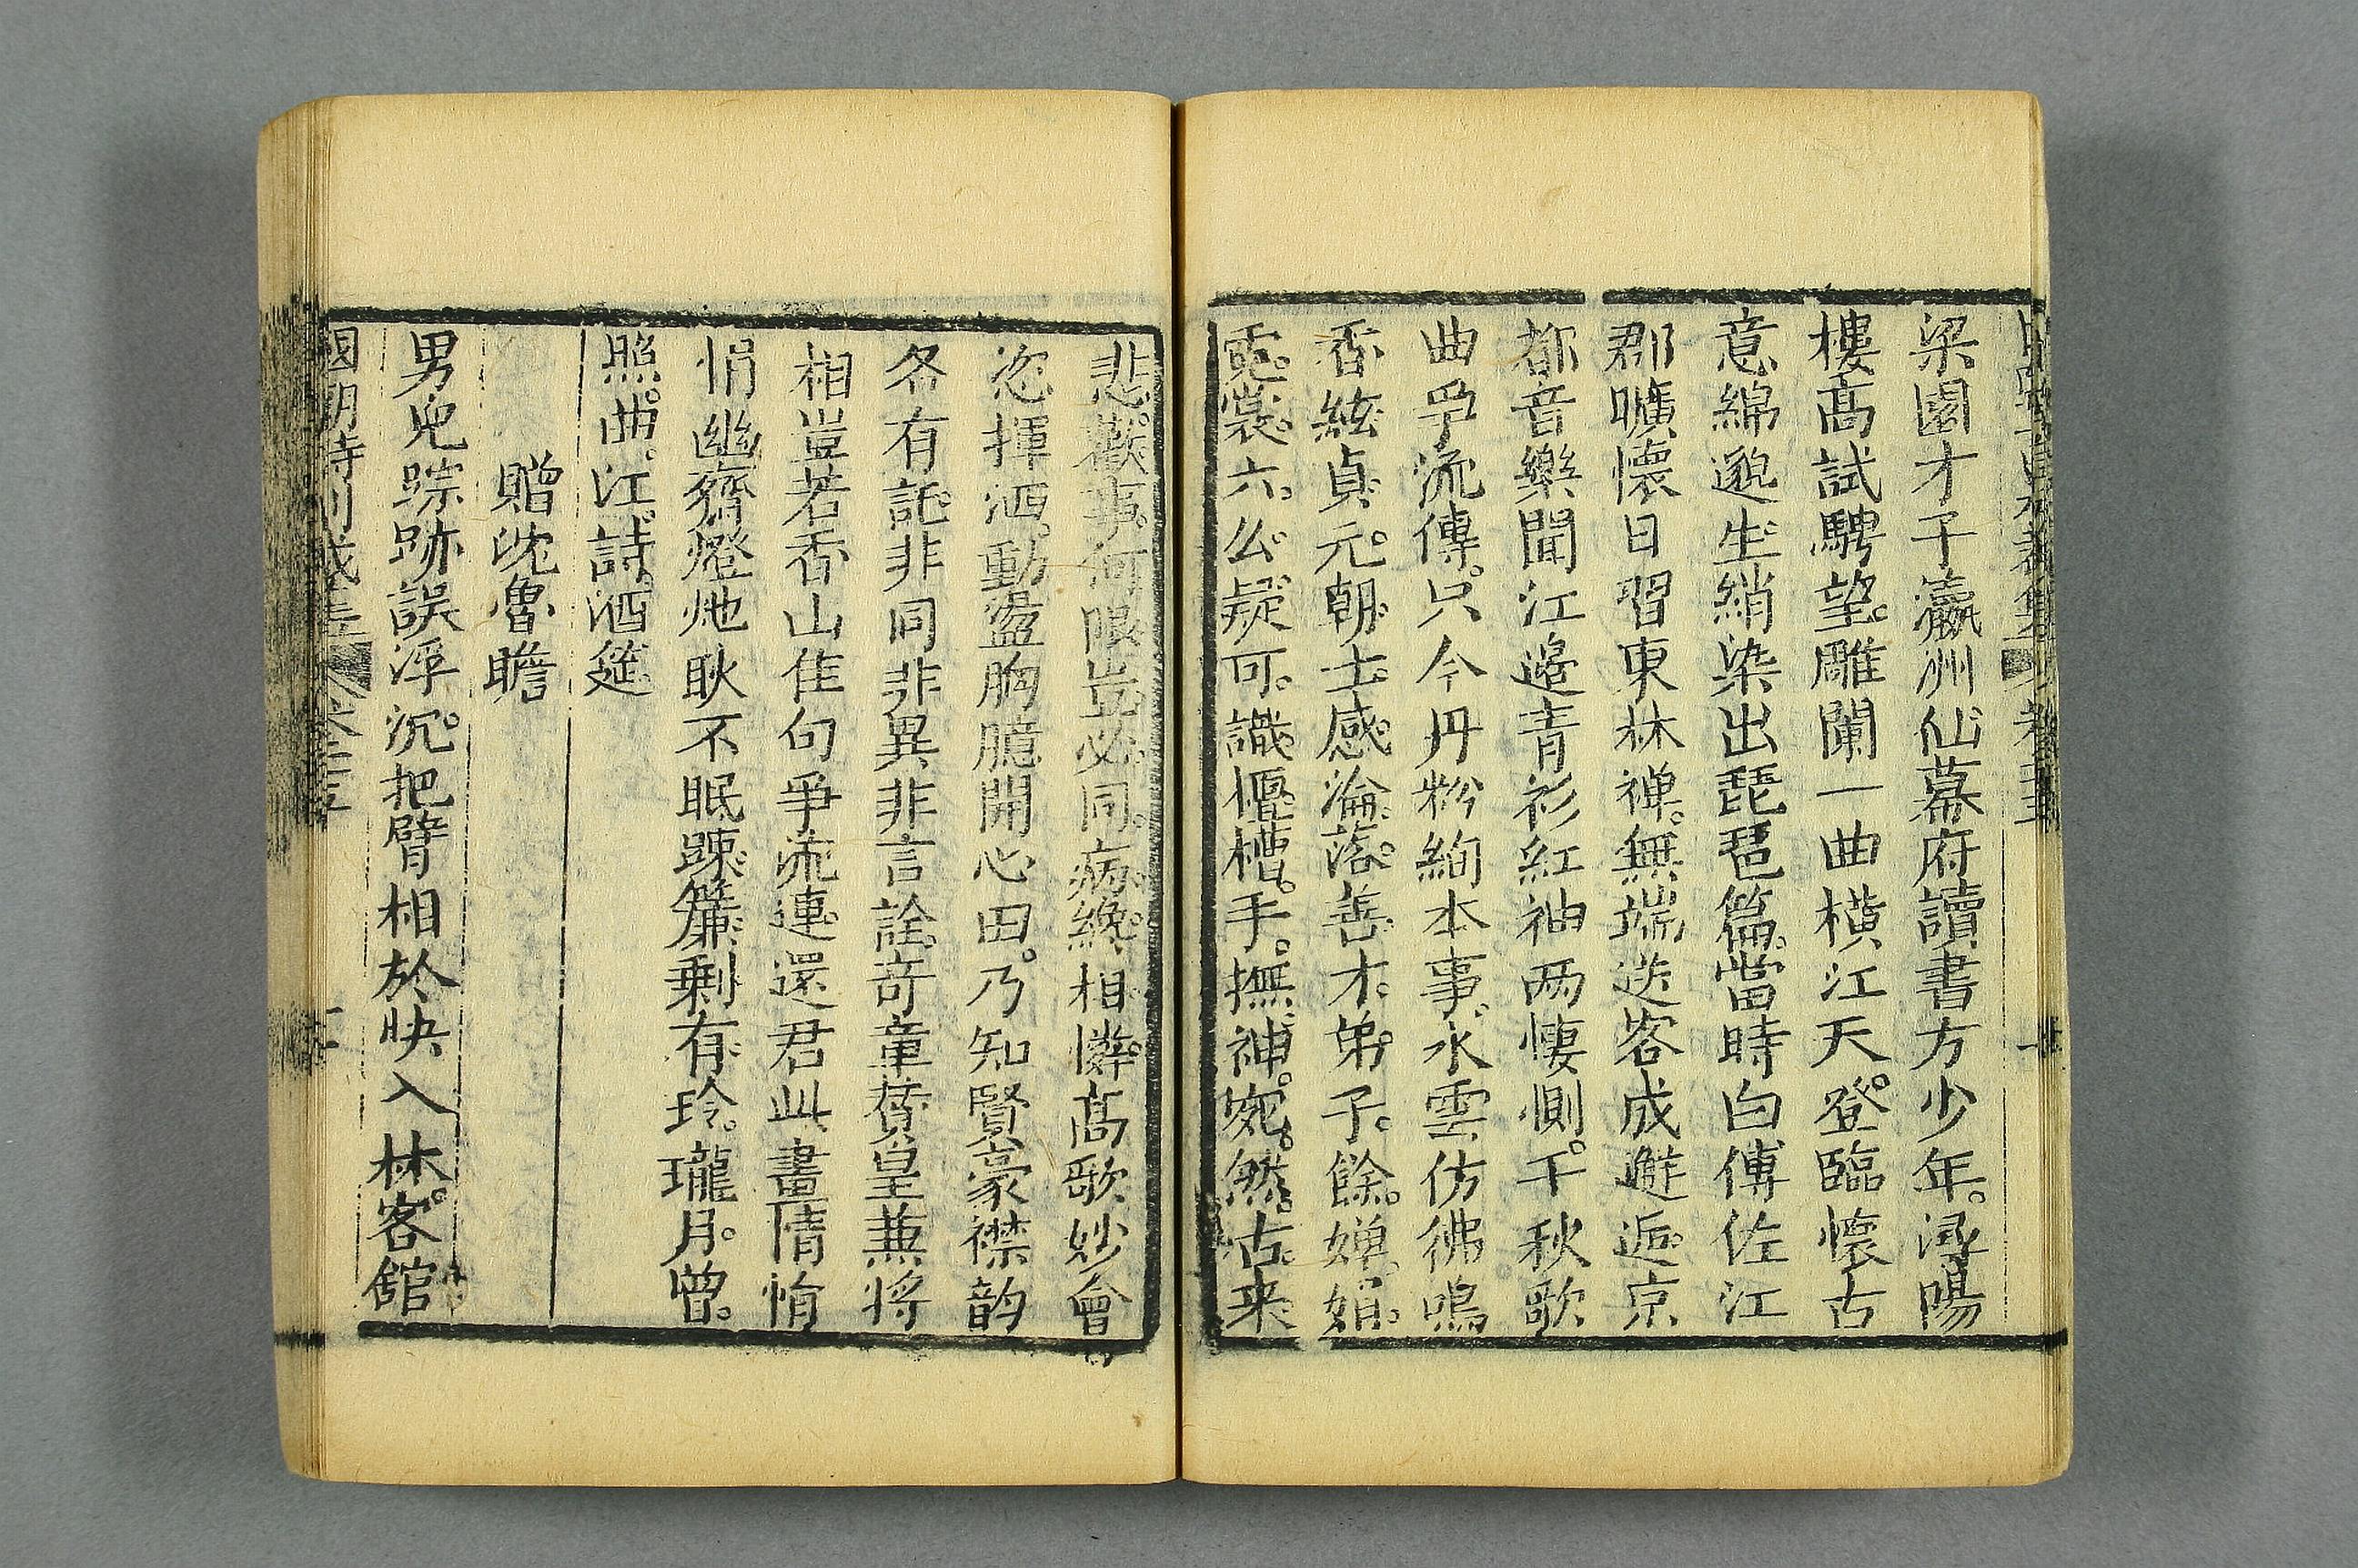 梁園才子瀛洲仙幕府讀書方少年。潯陽
樓高試騁望。雕闌一曲橫江天。登臨懷古
意綿邈。生綃染出琵琶篇。當時白傅佐江
郡曠懷日習東林禅。無端送客成邂逅。京
都音樂聞江邉青衫紅袖两悽惻。千秋歌
曲爭流傳。只今丹粉絢本事。水雲仿彿鳴
香絃。貞元朝士感淪落。善才弟子餘嬋娟。
霓裳六么疑可識。檀槽手撫神宛然。古来
悲歡事何限。豈必同病纔相憐。高歌妙會
恣揮洒。動盪胸臆開心田。乃知賢豪襟韵
各有託。非同非異非言詮。奇章贊皇兼將
相豈若香山佳句爭流連。還君此畫情悁
悁幽齋燈灺耿不眠。踈簾剩有玲瓏月。曾
照曲江詩酒筵。
贈沈魯瞻
男兒踪跡誤浮沉。把臂相於快入林。客舘
國朝詩別裁集 卷三